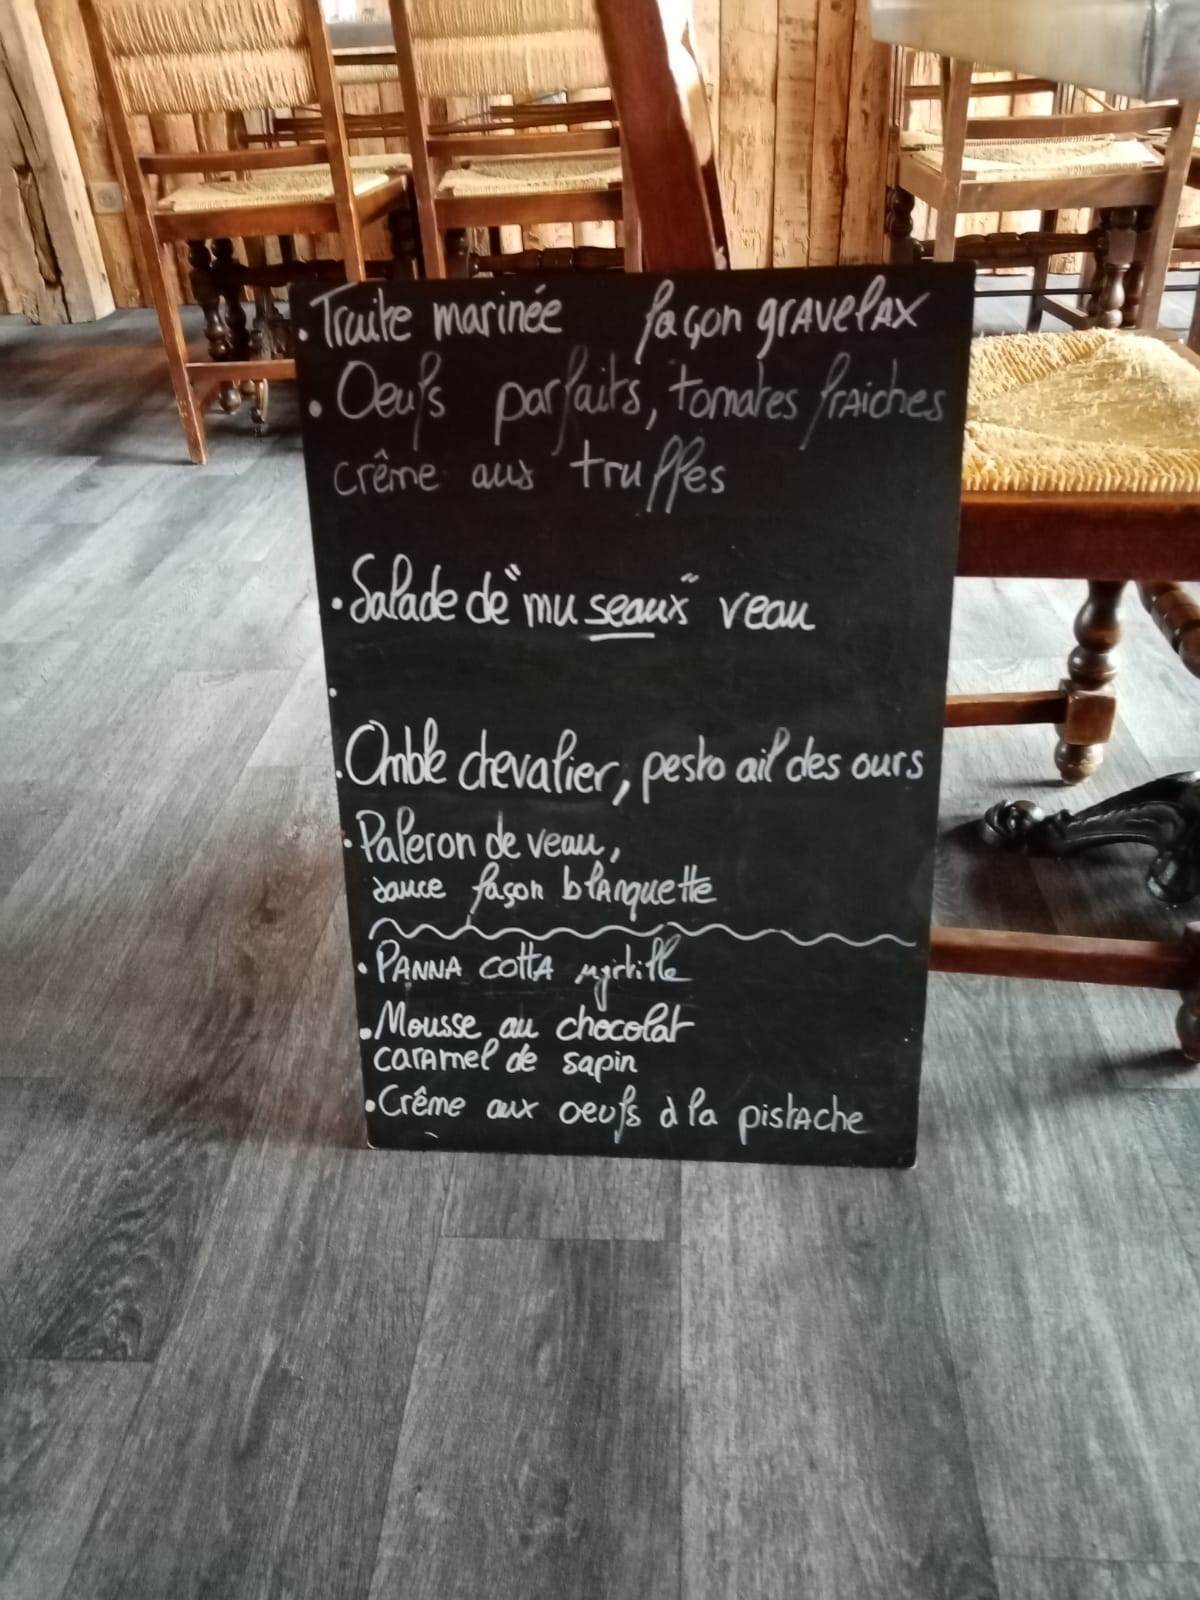 . Truite marinée façon gravelax
. Oeufs parfaits, tomates fraiches
crême aux truffes
. Salade de "museaux" veau
.
. Omble chevalier, pesto ail des ours
. Paleron de veau,
sauce façon blanquette
. PANNA COTTA myrtille
. Mousse au chocolat
caramel de sapin
. Crême aux oeufs à la pistache